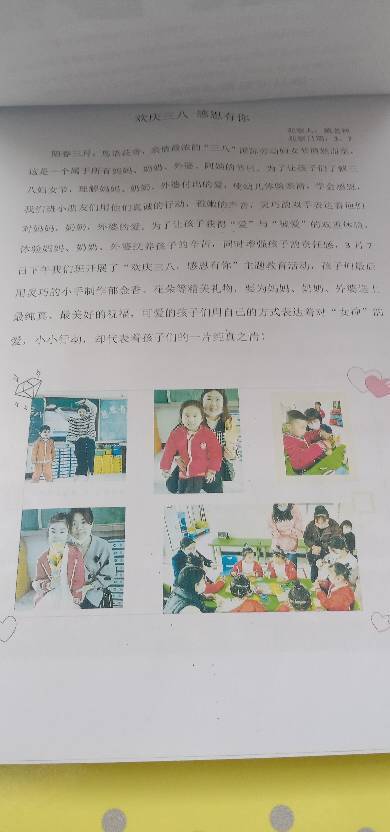 欢庆三八 感恩有你
观察日期：3、7
阳春三月，鸟语花香，亲情最浓的“三八”国际劳动妇女节悄然而至，
这是一个属于所有妈妈、奶奶、外婆、阿姨的节日。为了让孩子们了解三
八妇女节，理解妈妈、奶奶、外婆付出的爱，使幼儿体验亲情，学会感恩，
我们班小朋友们用他们真诚的行动、稚嫩的声音、灵巧的双手表达着他们
对妈妈、奶奶、外婆的爱。为了让孩子获得“爱”与“被爱”的双重体验，
体验妈妈、奶奶、外婆抚养孩子的辛苦，同时增强孩子的责任感，3月7
日下午我们班开展了“欢庆三八，感恩有你”主题教育活动，孩子们最后
用灵巧的小手制作郁金香、花朵等精美礼物，要为妈妈、奶奶、外婆送上
最纯真、最美好的祝福，可爱的孩子们用自己的方式表达着对“女神”的
爱，小小行动，却代表着孩子们的一片纯真之情！